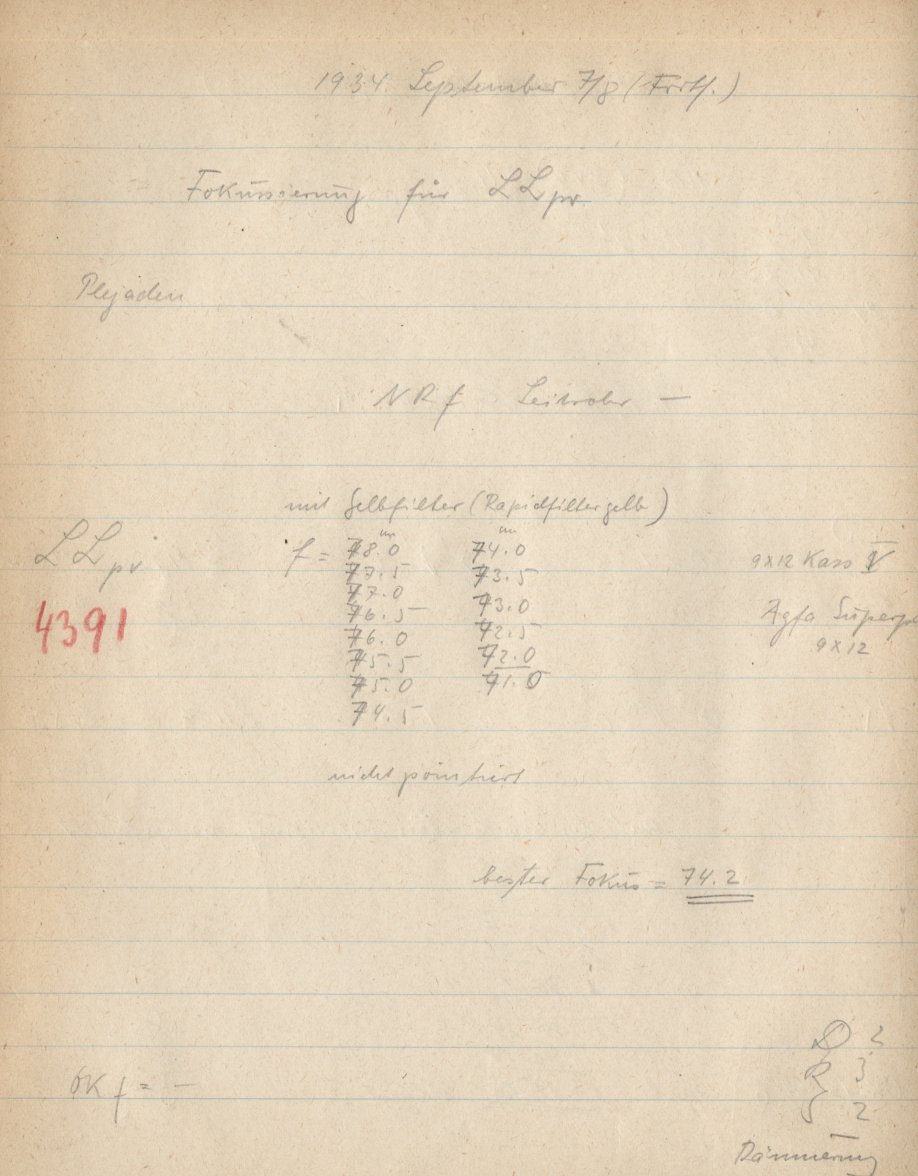 1934. September 7/8 (Forts.)
Fokussierung für LLpv
Plejaden
NRf Leitrohr —
mit Gelbfilter (Rapidfilter gelb)
LLpv f = 78.0 mm 74.0 mm 9x12 Kass V
77.5 73.5
77.0 73.0 Agfa Superp
4391 76.5 72.5 9x12
76.0 72.0
75.5 71.0
75.0
74.5
nicht pointiert
bester Fokus = 74.2
2
ÖKf = — R 3
2
Dämmerung